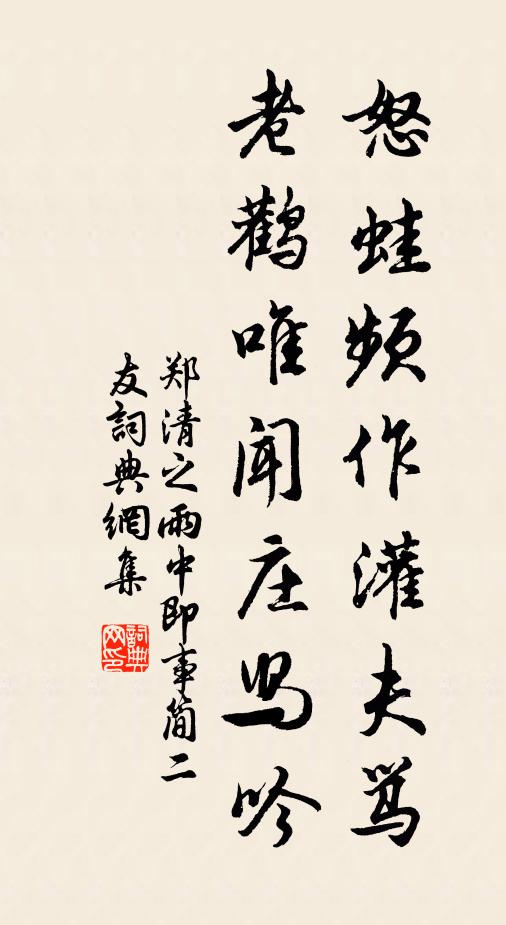 怒蛙频作灌夫骂
老鹳唯闻庄舄吟
郑清之雨中即事简二
友詞典網集
詞典
网印